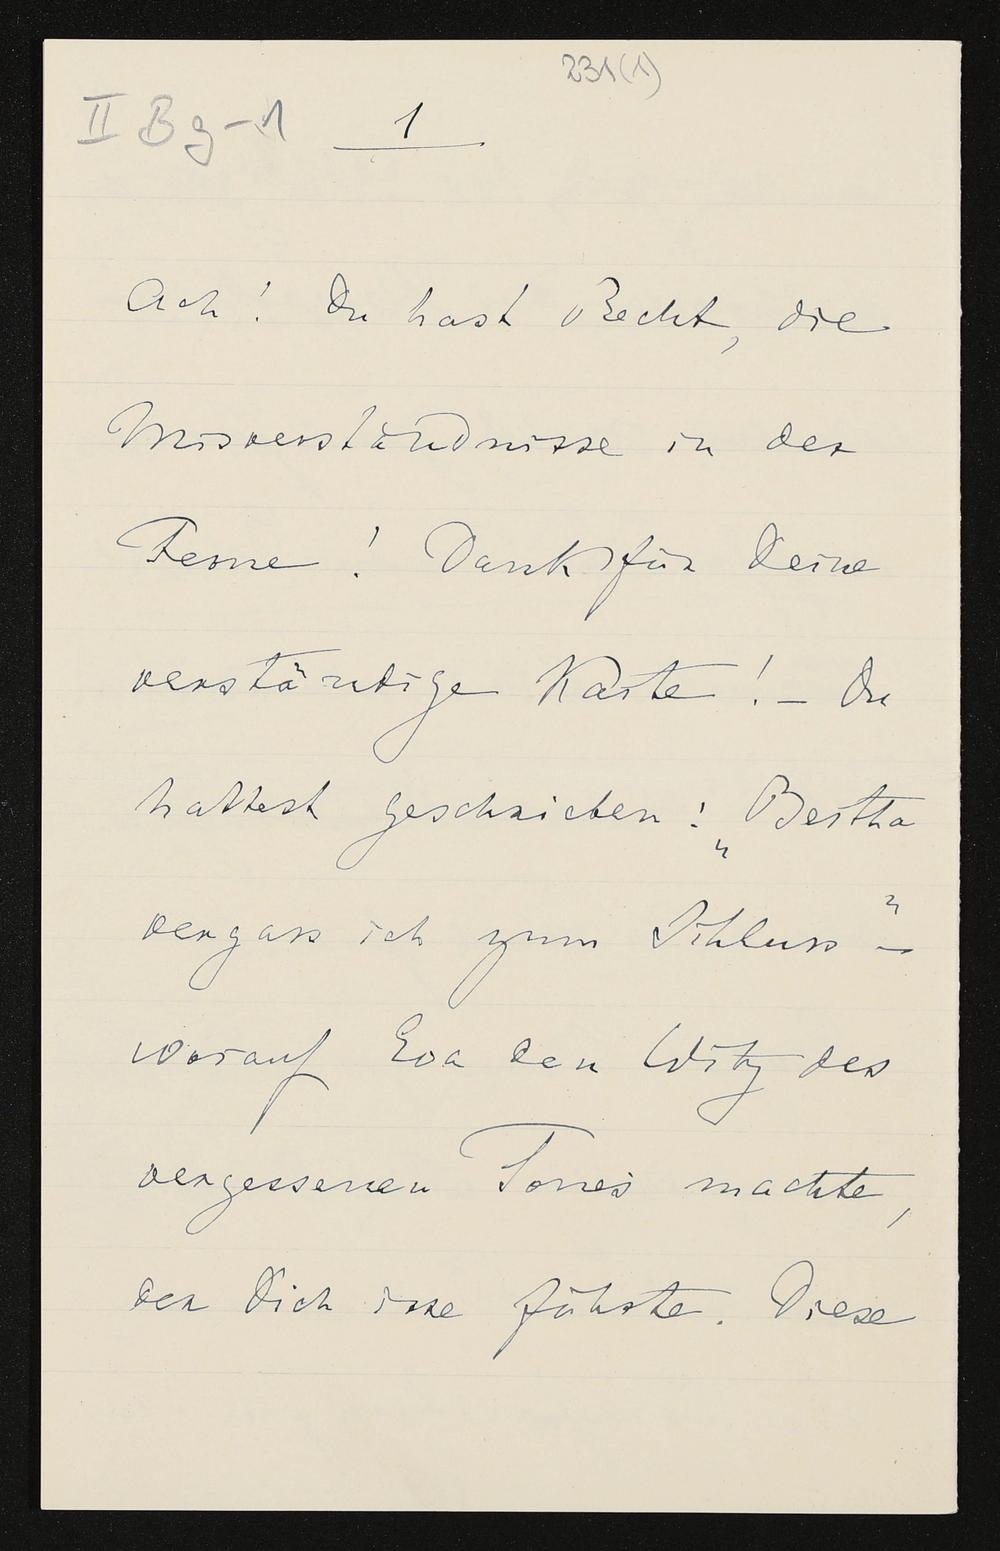 231(1)
II Bg-1 1
Ach! Du hast Recht, die
Misverständnisse in der
Ferne! Dank für Deine
verständige Karte! - Du
hattest geschrieben: „Bertha
vergass ich zum Schluss" -
worauf Eva den Witz des
vergessenen Tones machte,
der Dich irre führte. Diese